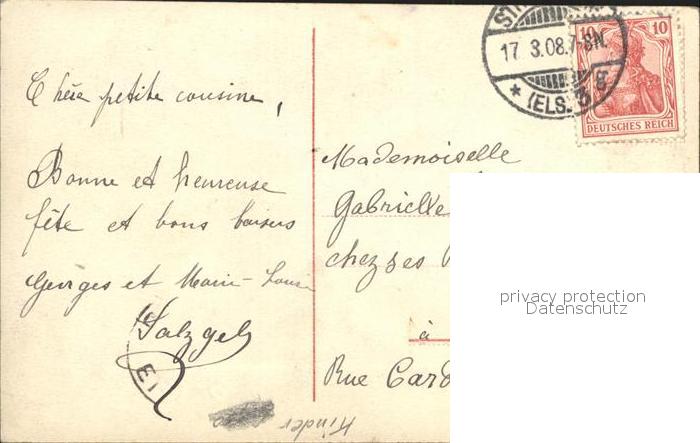 Chère petite cousine,
Bonne et heureuse
fête et bons baisers
Georges et Marie-Louise
Salzgeb
17 3.08.7-8N.
* (ELS.)
10 10
DEUTSCHES REICH
Mademoiselle
Gabrielle
chez ses
à
Rue Card
privacy protection
Datenschutz
Kinder